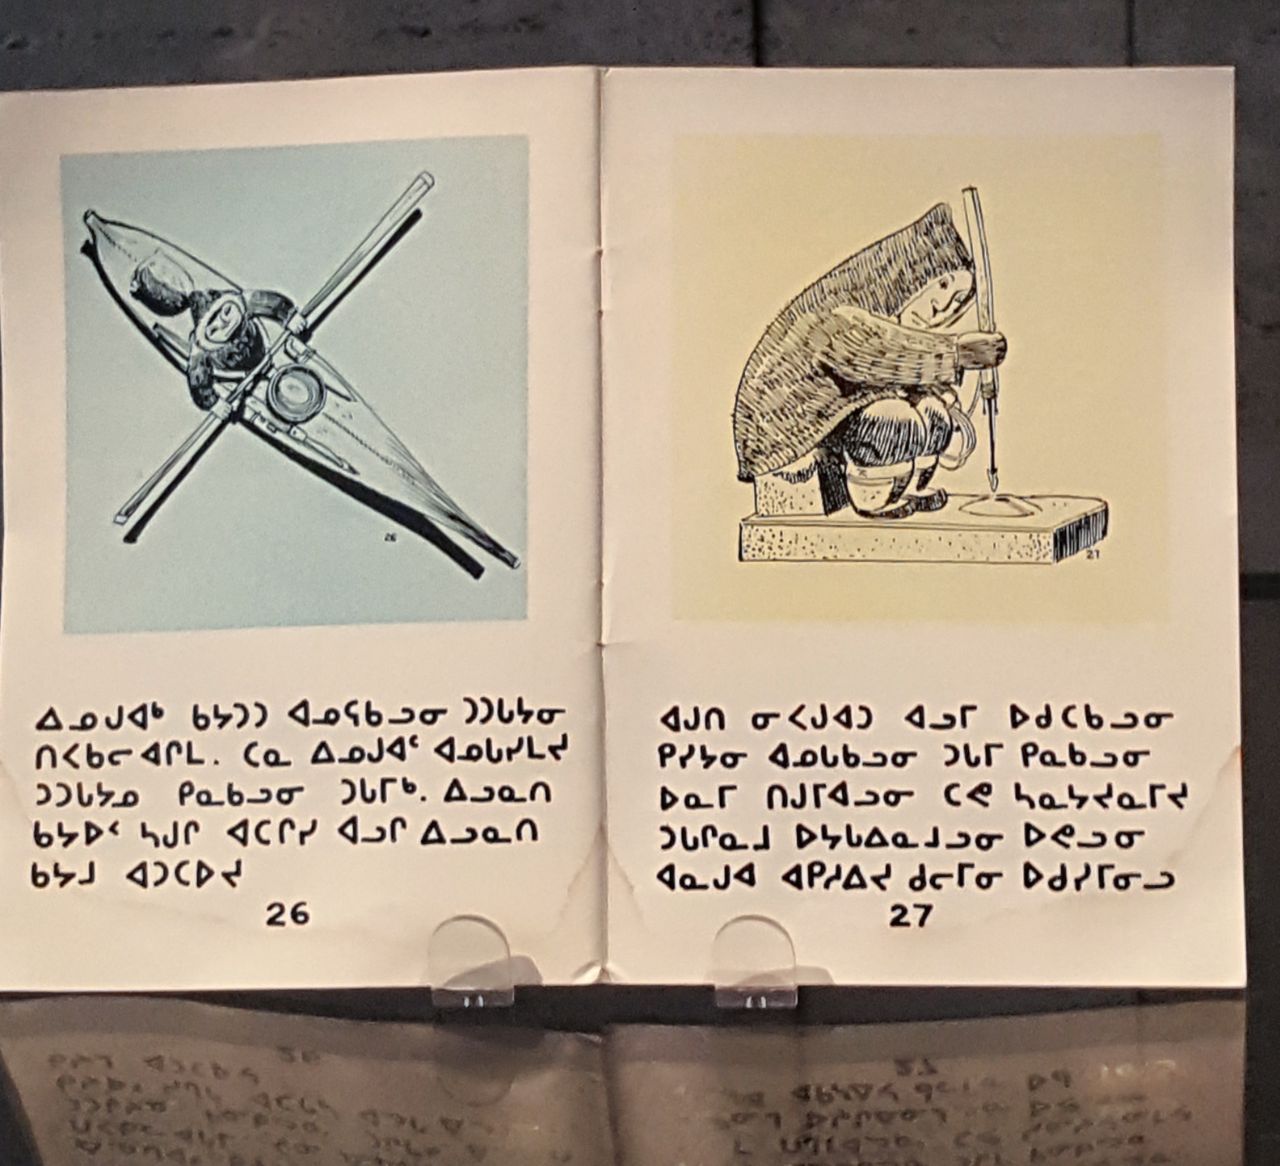 26
ᐃᓄᒍᐊᒃ ᑲᔭᑐᑐ ᐊᓄᕋᑲᓗᓂ ᑐᑐᒐᔭᓂ
ᑎᐸᑲᓕᐊᒋᒪ. ᑕᓇ ᐃᓄᒍᐊᑦ ᐊᓄᒐᓯᒪᔪ
ᑐᑐᒐᔭᓄ ᑭᓇᑲᓗᓂ ᑐᒐᒥᒃ. ᐃᓗᓇᑎ
ᑲᔭᐅᑉ ᓴᒍᒋ ᐊᑕᒋᓯ ᐊᓗᒋ ᐃᓗᓇᑎ
ᑲᔭᒧ ᐊᑐᑕᐅᔪ
26
27
ᐊᒍᑎ ᓂᐸᒍᐊᑐ ᐊᓗᒥ ᐅᑯᑕᑲᓗᓂ
ᑭᓯᔭᓂ ᐊᓄᒐᑲᓗᓂ ᑐᒐᒥ ᑭᓇᑲᓗᓂ
ᐅᓇᒥ ᑎᒍᒥᐊᓗᓂ ᑕᕙ ᓴᓇᔭᔪᓇᒥᔪ
ᑐᒐᒋᓇᒧ ᐅᔭᒐᐃᓇᒧᓗᓂ ᐅᕙᓗᓂ
ᐊᓇᒍᐊ ᐊᑭᓱᐃᔪ ᑯᓕᒥᓂ ᐅᑯᓯᒥᓂᓗ
27